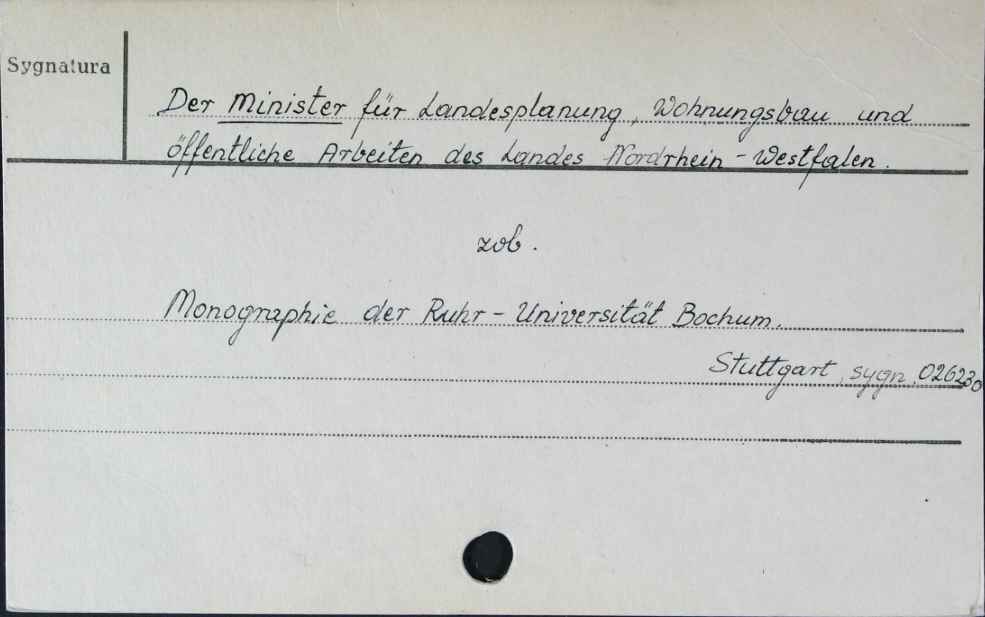 Sygnatura
Der Minister für Landesplanung, Wohnungsbau und
öffentliche Arbeiten des Landes Nordrhein-Westfalen.
zob.
Monographie der Ruhr-Universität Bochum.
Stuttgart, sygn. 026230